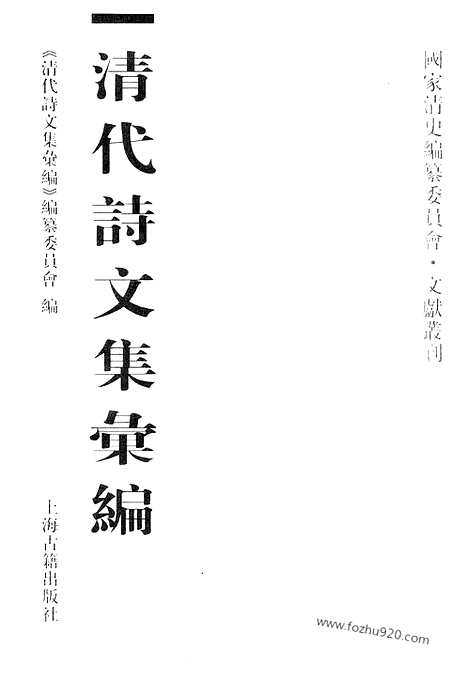 國家清史編纂委員會·文獻叢刊
清代詩文集彙編
《清代詩文集彙編》編纂委員會 編
上海古籍出版社
www.fozhu920.com